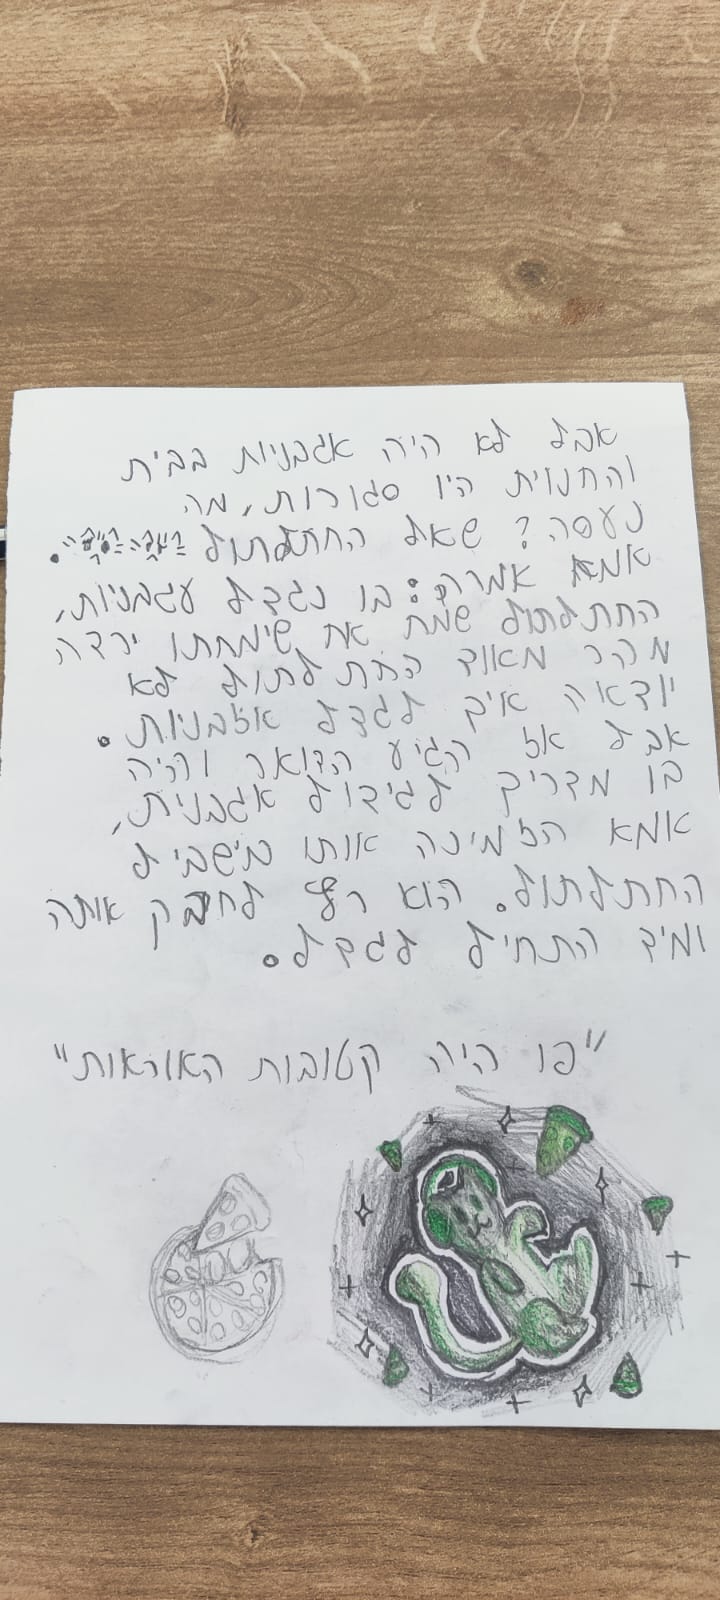 אבל לא היה אגבניות בבית
והחנוית היו סגורות, מה
נעסה? שאל החתלתול
אמא אמרה: בו נגדל עגבניות,
החתלתול שמח אח שימחתו ירדה
מהר מאווד החתלתול לא
יודאה איך לגדל אגבניות.
אבל אז הגיע הדואר והיה
בו מדריך לגידול אגבנית,
אמא הזמינה אותו בישביל
החתלתול. הוא רץ לחבק אותה
ומיד התחיל לגדל.
"פו היה קטובות האוראות"